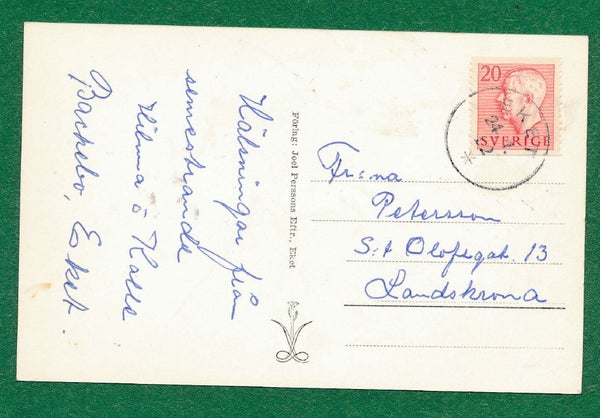 Hälsningar från
semestrande
Hilma o Halls
Backebo, Eket.
Förlag: Joel Perssons Eftr., Eket
20
SVERIGE
EKET
24
Fr:na
Petersson
S:t Olofsgat. 13
Landskrona